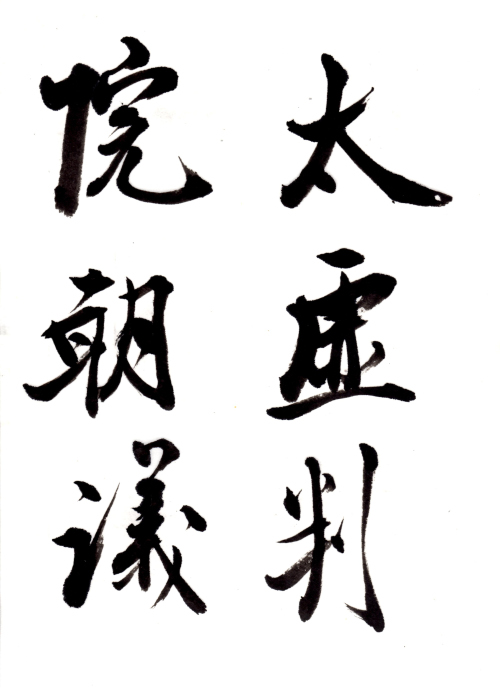 太虚判
院朝議